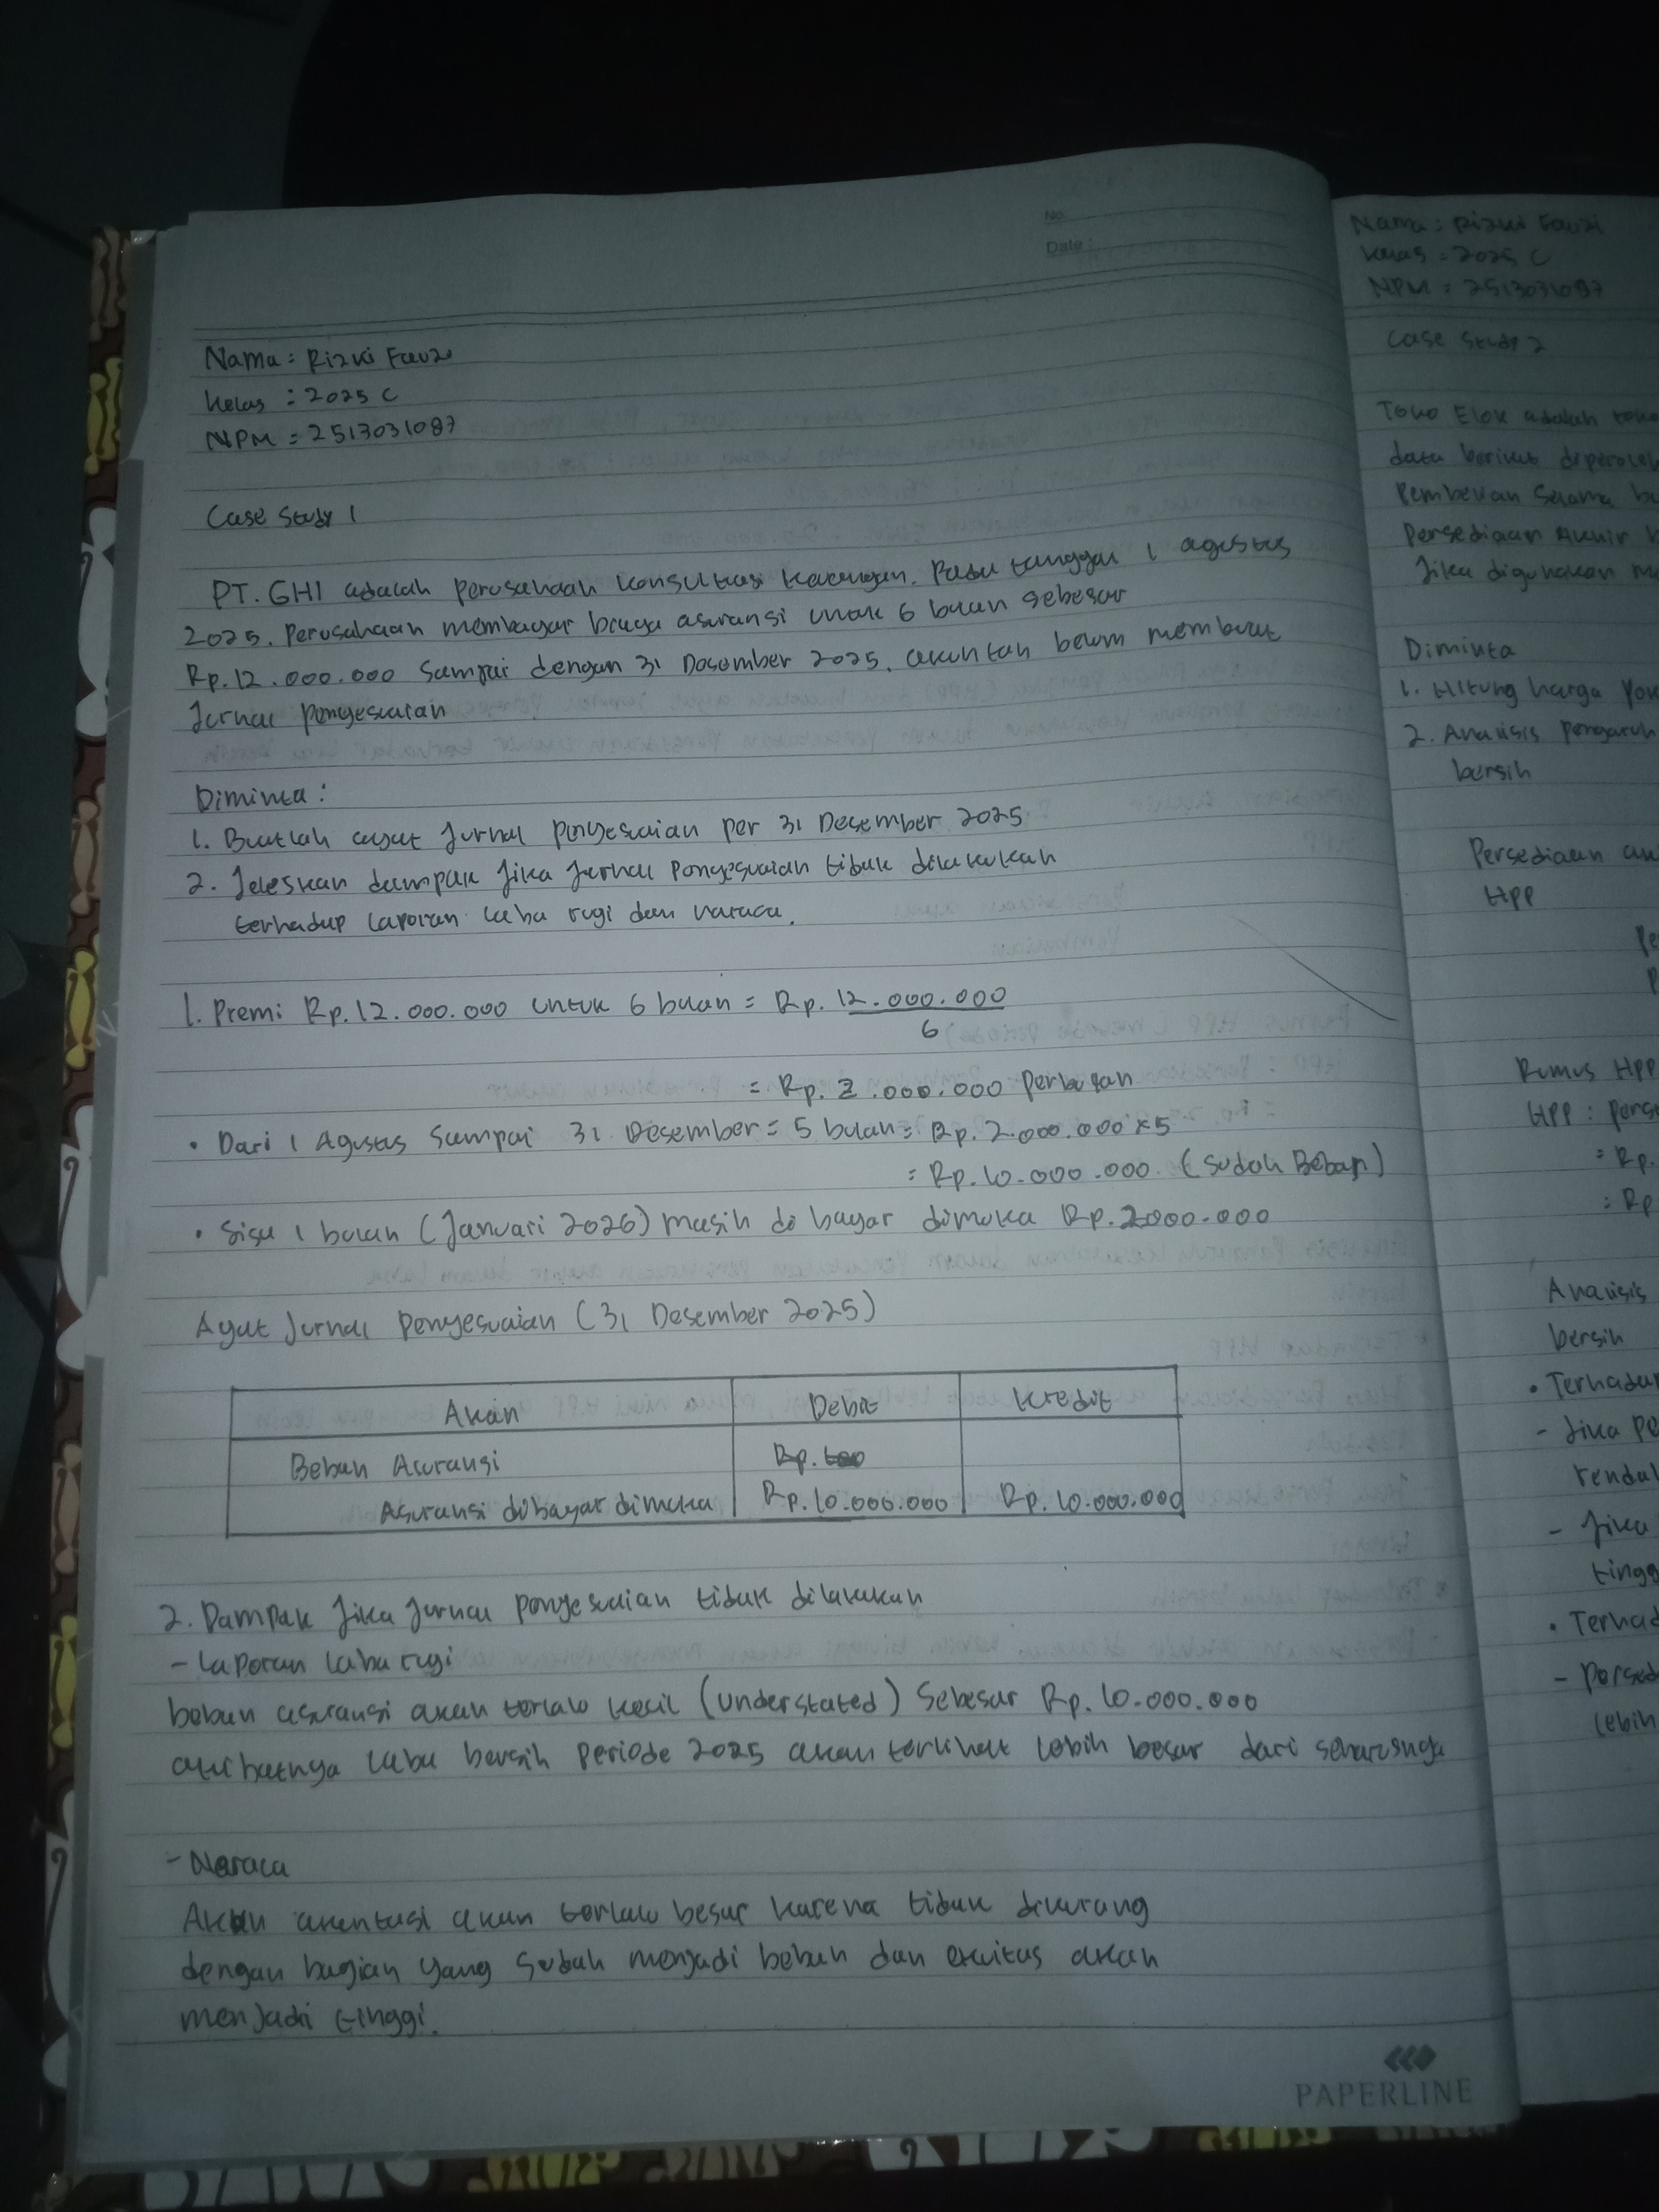 No.
Date:
Nama : Rizki Fauzi
Kelas : 2025 C
NPM : 2513031087
Case Study 1
PT. GHI adalah perusahaan konsultasi keuangan. Pada tanggal 1 agustus
2025. Perusahaan membayar biaya asuransi untuk 6 bulan sebesar
Rp. 12.000.000 Sampai dengan 31 Desember 2025. akuntan belum membuat
Jurnal penyesuaian
Diminta :
1. Buatlah ayat Jurnal penyesuaian per 31 Desember 2025
2. Jeleskan dampak Jika Jurnal Penyesuaian tidak dilakukan
terhadap laporan laba rugi dan naraca.
1. Premi Rp. 12.000.000 untuk 6 bulan = Rp. 12.000.000
6
= Rp. 2.000.000 Perbulan
• Dari 1 Agustus Sampai 31 Desember = 5 bulan = Rp. 2.000.000 x 5
= Rp. 10.000.000 (Sudah Beban)
• Sisa 1 bulan (Januari 2026) masih di bayar dimuka Rp. 2.000.000
Ayat Jurnal Penyesuaian (31 Desember 2025)
Akun Debit Kredit
Beban Asuransi
Asuransi dibayar dimuka Rp. 10.000.000 Rp. 10.000.000
2. Dampak Jika Jurnal penyesuaian tidak dilakukan
- Laporan laba rugi
beban asuransi akan terlalu kecil (understated) Sebesar Rp. 10.000.000
akibatnya laba bersih Periode 2025 akan terlihat lebih besar dari seharusnya
- Neraca
Akun akan terlalu besar karena tidak dikurang
dengan bagian yang Sudah menjadi beban dan ekuitas akan
menjadi tinggi.
PAPERLINE
Nama : Rizki Fauzi
Kelas : 2025 C
NPM : 2513031087
Case Study 2
Toko Elok adalah
data berikut
Pembelian Selama
Persediaan Akhir
Jika digunakan
Diminta
1. Hitung harga
2. Analisis pengaruh
bersih
Persediaan
HPP
Rumus HPP
HPP :
= Rp.
: Rp
Analisis
bersih
•
- Jika
- Jika
•
-
lebih